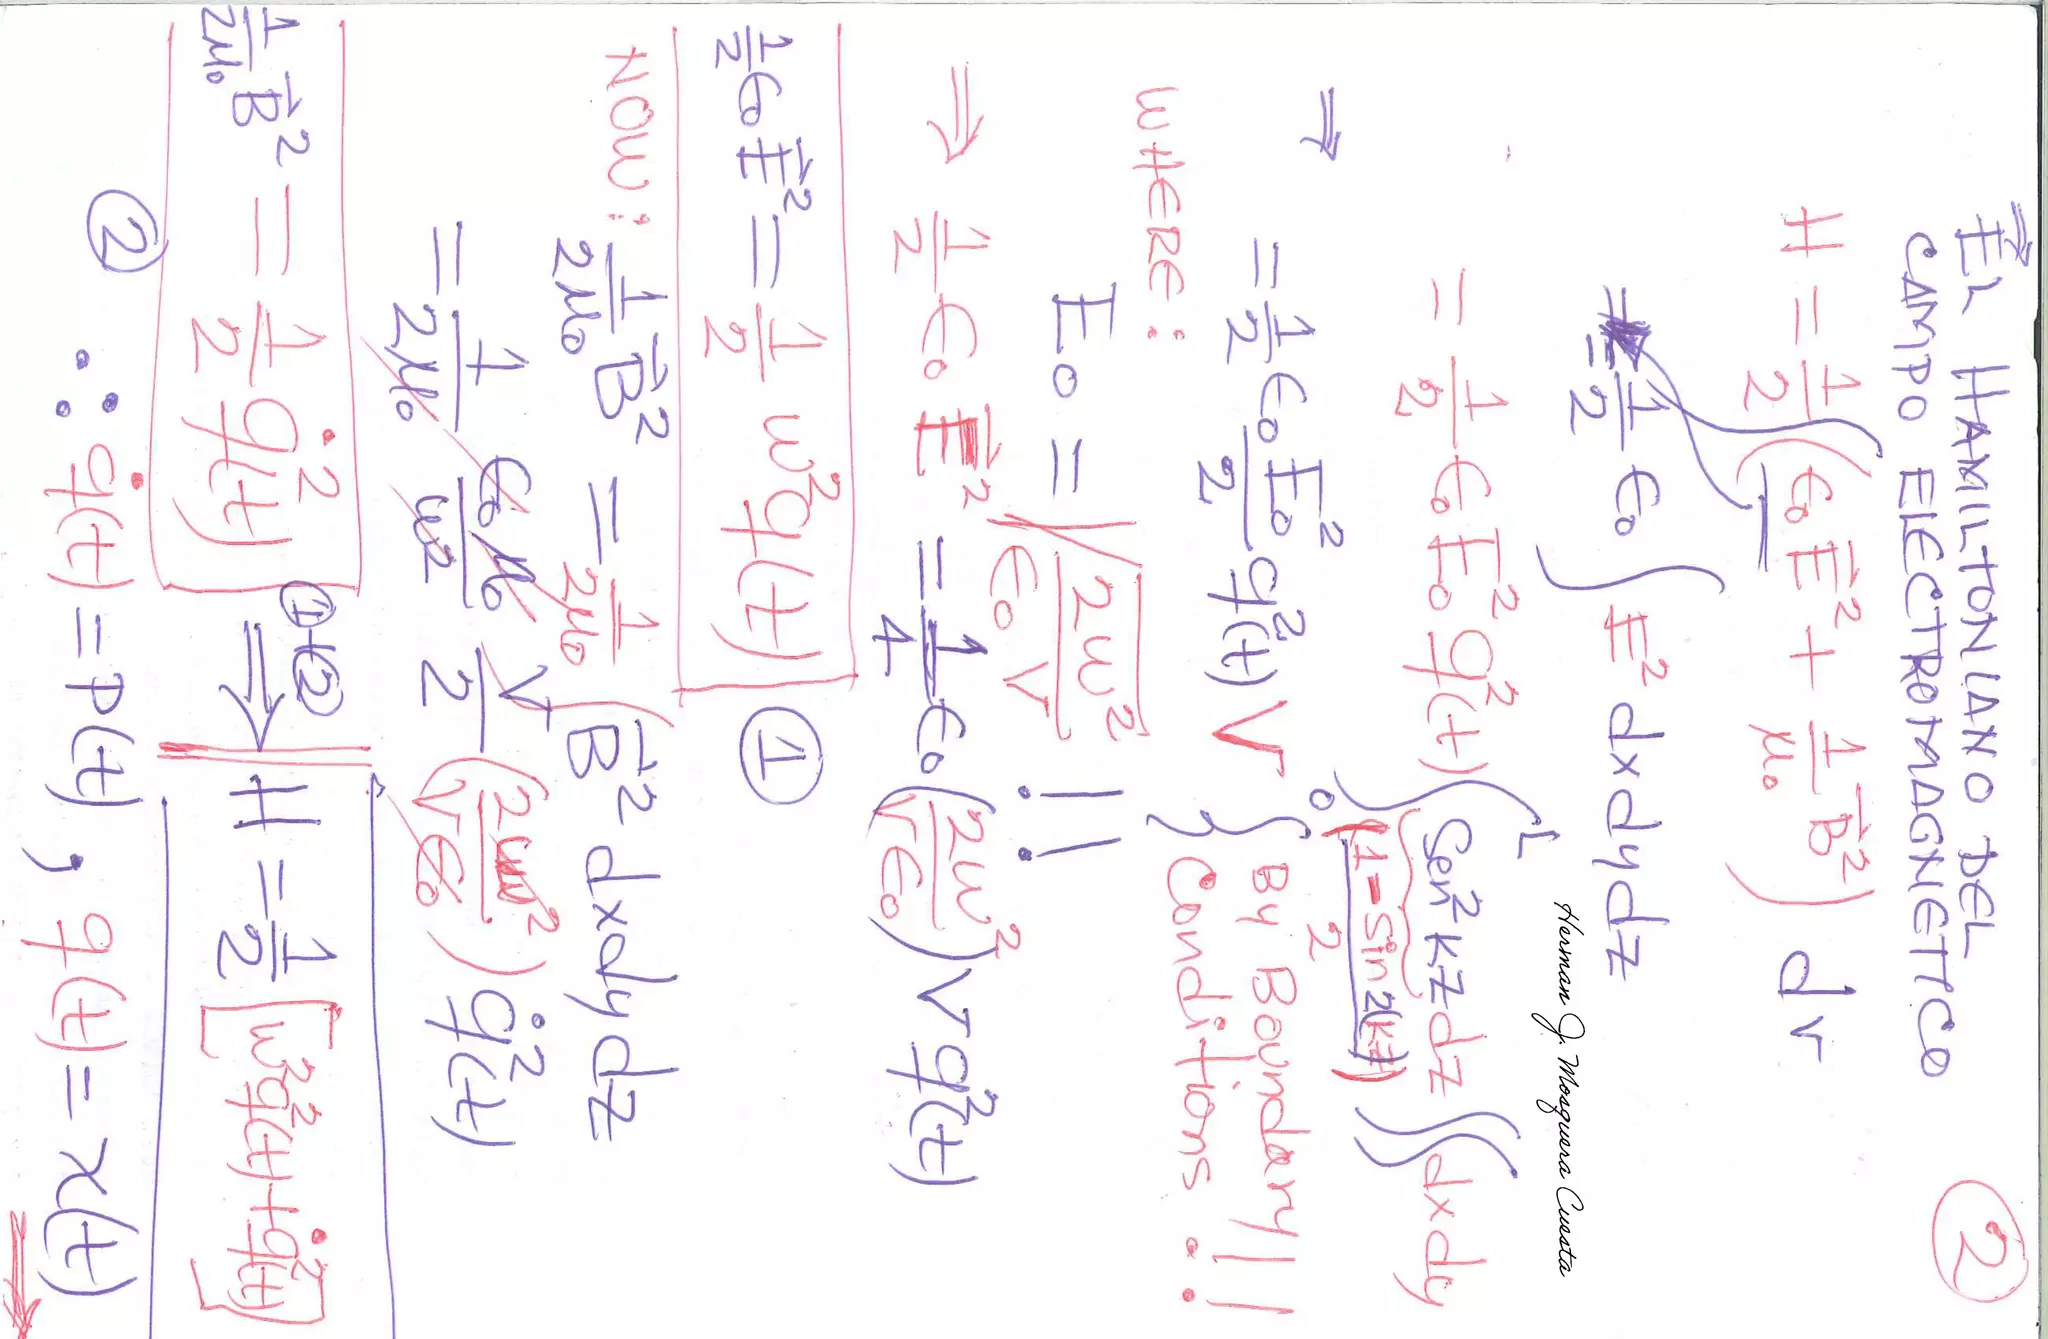 ②
⇒ EL HAMILTONIANO DEL
CAMPO ELECTROMAGNETICO
H = 1/2 ∫ (ϵ₀ E⃗² + 1/μ₀ B⃗²) dv
= 1/2 ϵ₀ ∫ E² dxdydz
Herman J. Mosquera Cuesta
= 1/2 ϵ₀ E₀² q²(t) ∫₀ᴸ Sen² kz dz ∬ dxdy
(1 - sin 2(kz)) / 2
⇒ = 1/2 ϵ₀ E₀²/2 q²(t) V { By Boundary!!
Conditions !
WHERE :
E₀ = √(2w²/ϵ₀V) !!
⇒ 1/2 ϵ₀ E⃗² = 1/4 ϵ₀ (2w²/Vϵ₀) V q²(t)
1/2 ϵ₀ E⃗² = 1/2 w² q(t) ①
NOW : 1/2μ₀ B⃗² = 1/2μ₀ ∫ B⃗² dxdydz
= 1/2μ₀ ϵ₀μ₀/w² V/2 (2w²/Vϵ₀) q̇²(t)
1/2μ₀ B⃗² = 1/2 q̇²(t) ①+② ⇒ H = 1/2 [w²q²(t) + q̇²(t)]
② ∴ q̇(t) = P(t) , q(t) = x(t) ⇒